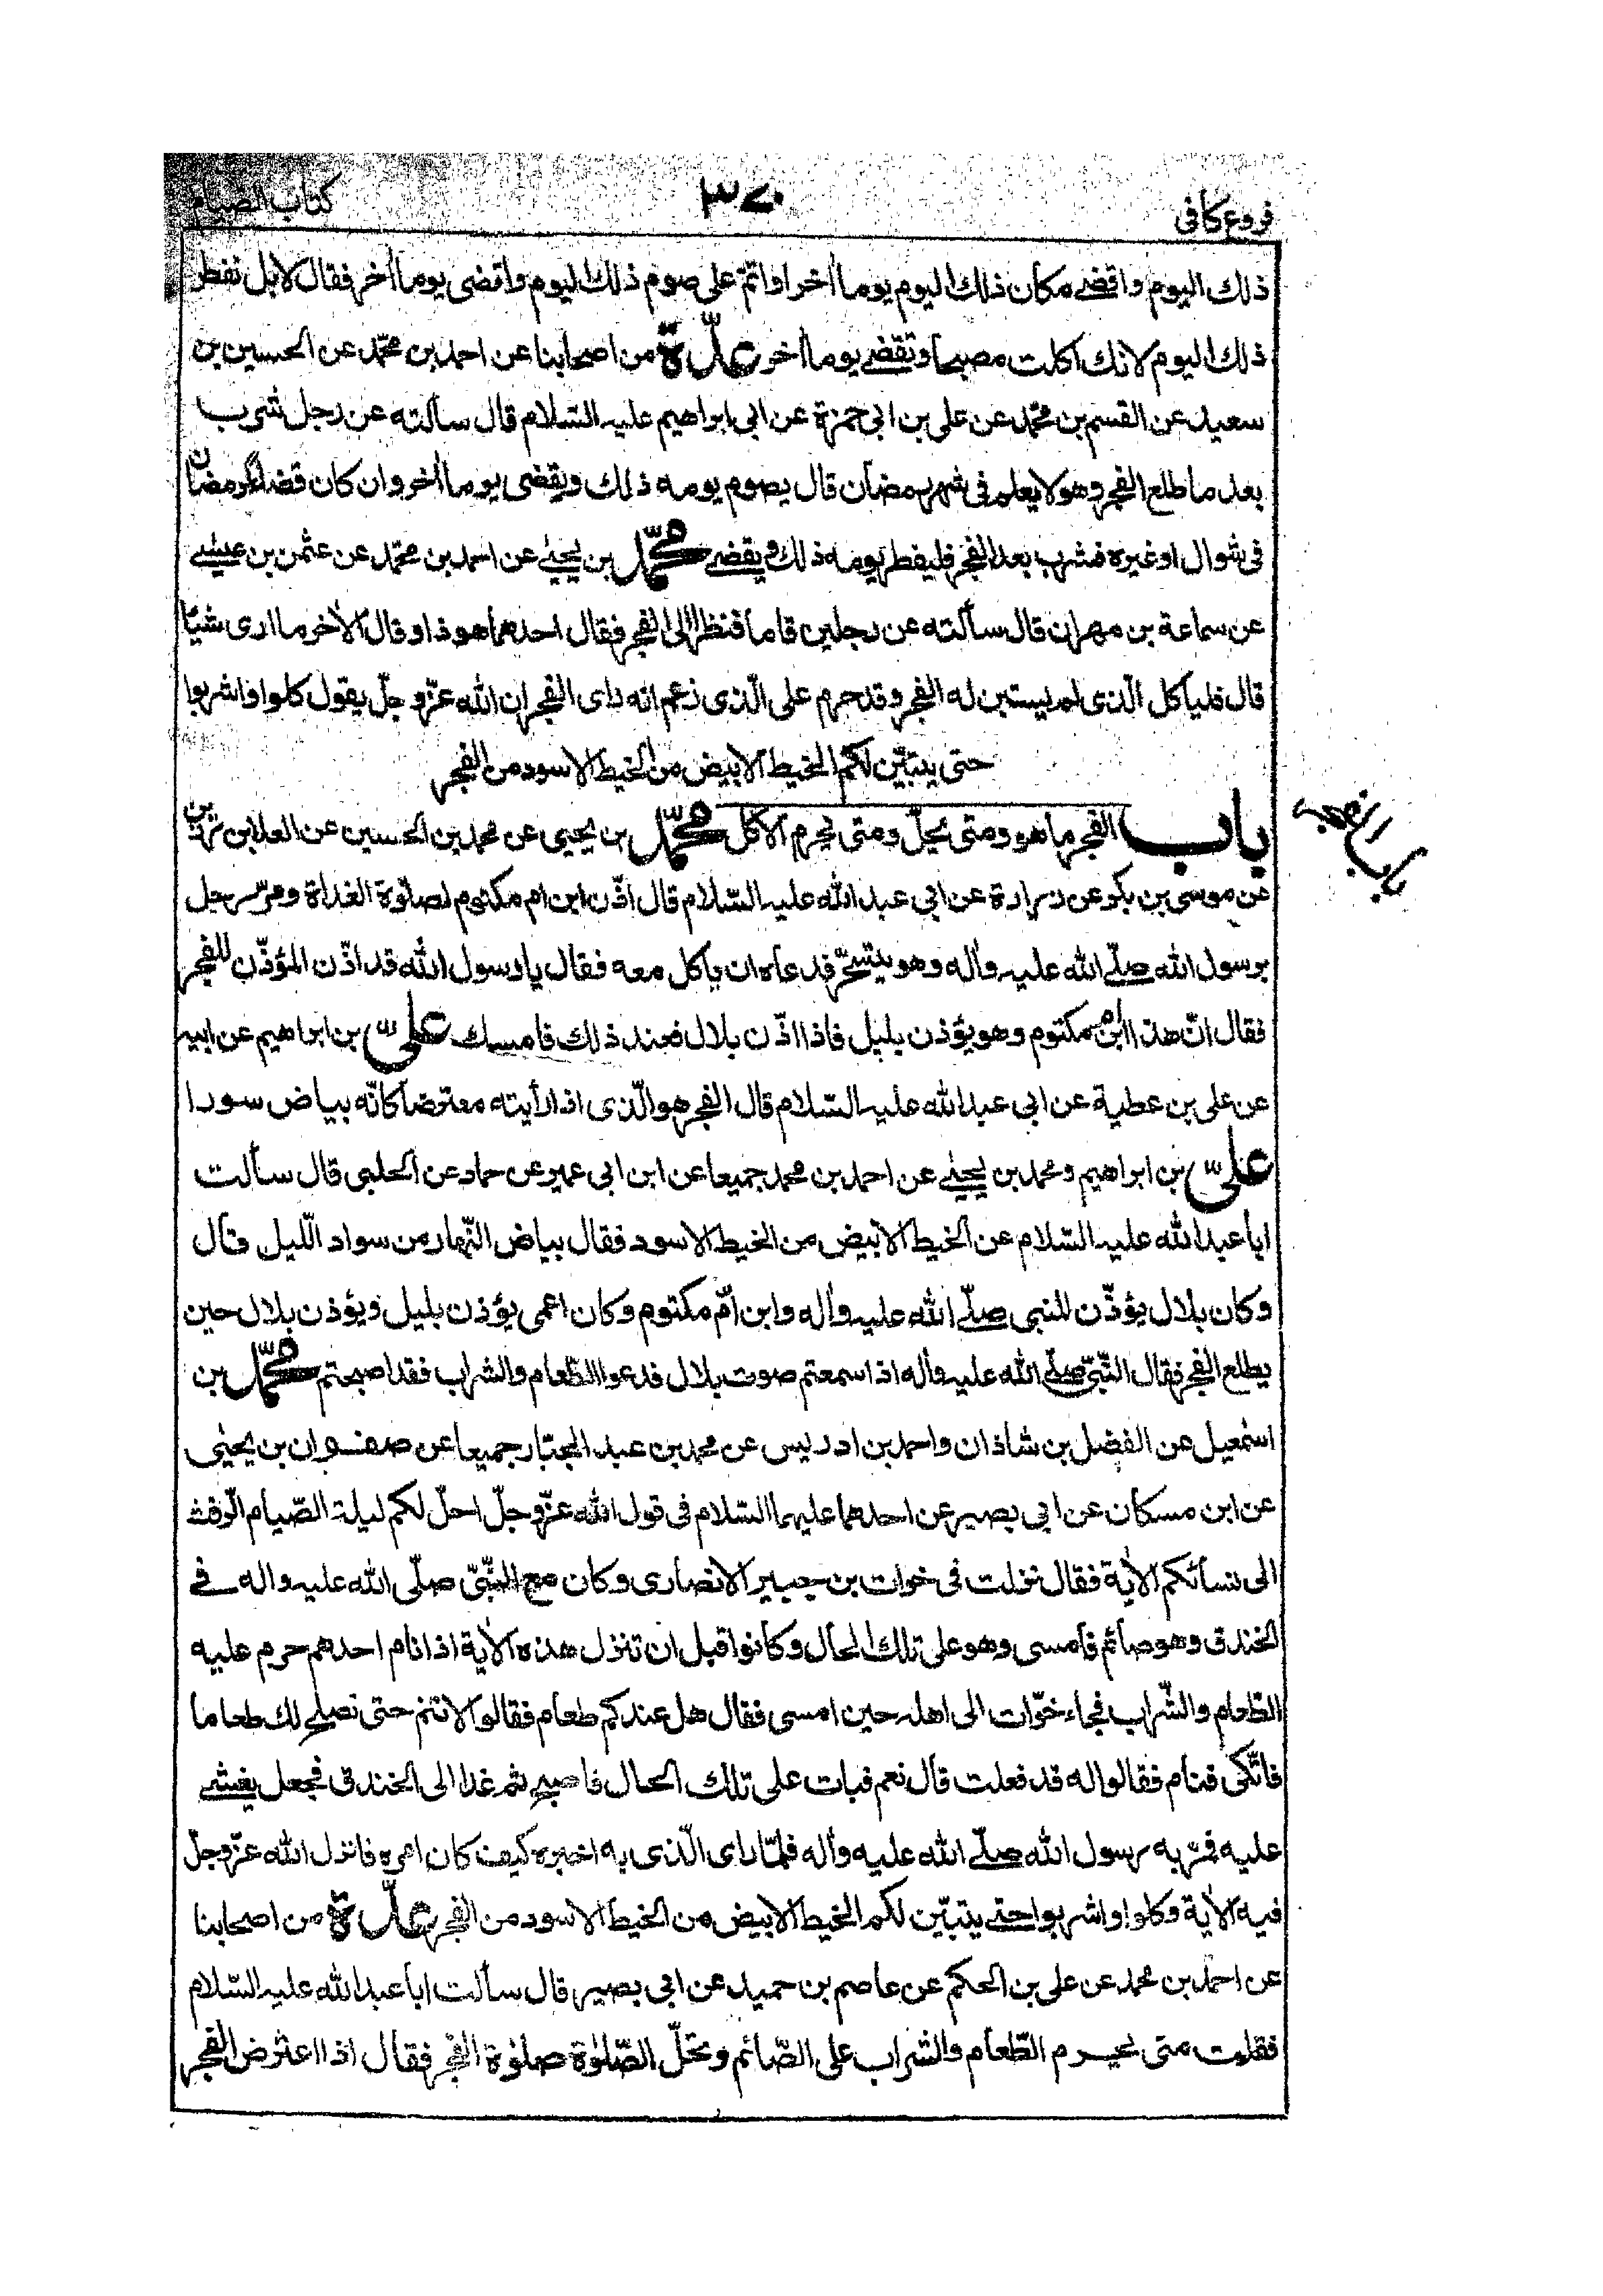 فروع كافى
٣٧٠
كتاب الصيام
ذلك اليوم واقضى مكان ذلك اليوم يوما اٰخر اواتمّ على صوم ذلك اليوم واقضى يوما اٰخر فقال لا بل تفطر
ذلك اليوم لانك اكلت مصبحا وتقضى يوما اٰخر عدّة من اصحابنا عن احمد بن محمّد عن الحسين بن
سعيد عن القسم بن محمّد عن على بن ابى حمزة عن ابى ابراهيم عليه السّلام قال سألته عن رجل شرب
بعد ما طلع الفجر وهو لا يعلم فى شهر رمضان قال يصوم يومه ذلك ويقضى يوما اٰخر وان كان قضاء لرمضان
فى شوال اوغيره فشرب بعد الفجر فليفطر يومه ذلك ويقضى محمّد بن يحيىٰ عن احمد بن محمّد عن عثمٰن بن عيسىٰ
عن سماعة بن مهران قال سألته عن رجلين قاما فنظرا الى الفجر فقال احدهما هوذا وقال الاٰخر ما ارى شيئا
قال فلياكل الّذى لم يستبن له الفجر وقد حرم على الّذى زعم انه راى الفجر ان اللّٰه عزّوجلّ يقول كلوا واشربوا
حتى يتبيّن لكم الخيط الابيض من الخيط الاسود من الفجر
باب الفجر ما هو ومتى يحلّ ومتى يحرم الاكل محمّد بن يحيى عن محمد بن الحسين عن العلا بن رزين
باب الفجر
عن موسى بن بكر عن زرارة عن ابى عبد اللّٰه عليه السّلام قال اذّن ابن ام مكتوم لصلوٰة الغداة ومرّ رجل
برسول اللّٰه صلّى اللّٰه عليه واٰله وهو يتسحّر فدعاه ان ياكل معه فقال يا رسول اللّٰه قد اذّن المؤذّن للفجر
فقال انّ هذا ابن ام مكتوم وهو يؤذن بليل فاذا اذّن بلال فعند ذلك فامسك علىّ بن ابراهيم عن ابيه
عن على بن عطية عن ابى عبد اللّٰه عليه السّلام قال الفجر هو الّذى اذا رأيته معترضا كانّه بياض سورا
علىّ بن ابراهيم ومحمد بن يحيىٰ عن احمد بن محمد جميعا عن ابن ابى عمير عن حماد عن الحلبى قال سألت
ابا عبد اللّٰه عليه السّلام عن الخيط الابيض من الخيط الاسود فقال بياض النّهار من سواد اللّيل قال
وكان بلال يؤذّن للنبى صلّى اللّٰه عليه واٰله وابن امّ مكتوم وكان اعمى يؤذن بليل ويؤذن بلال حين
يطلع الفجر فقال النّبىّ صلّى اللّٰه عليه واٰله اذا سمعتم صوت بلال فدعوا الطّعام والشراب فقد اصبحتم محمّد بن
اسمٰعيل عن الفضل بن شاذان واحمد بن ادريس عن محمد بن عبد الجبّار جميعا عن صفوان بن يحيىٰ
عن ابن مسكان عن ابى بصير عن احدهما عليهما السّلام فى قول اللّٰه عزّوجلّ احلّ لكم ليلة الصّيام الرّفث
الى نسائكم الاٰية فقال نزلت فى خوات بن جبير الانصارى وكان مع النّبىّ صلّى اللّٰه عليه واٰله فى
الخندق وهو صائم فامسى وهو على تلك الحال وكانوا قبل ان تنزل هذه الاٰية اذا نام احدهم حرم عليه
الطّعام والشّراب فجاء خوّات الى اهله حين امسى فقال هل عندكم طعام فقالوا لا تنم حتى نصلح لك طعاما
فاتّكى فنام فقالوا له قد فعلت قال نعم فبات على تلك الحال فاصبح ثم غدا الى الخندق فجعل يغشى
عليه فمرّ به رسول اللّٰه صلّى اللّٰه عليه واٰله فلمّا راى الّذى به اخبره كيف كان امره فانزل اللّٰه عزّوجلّ
فيه الاٰية وكلوا واشربوا حتى يتبيّن لكم الخيط الابيض من الخيط الاسود من الفجر عدّة من اصحابنا
عن احمد بن محمد عن على بن الحكم عن عاصم بن حميد عن ابى بصير قال سألت ابا عبد اللّٰه عليه السّلام
فقلت متى يحرم الطّعام والشراب على الصّائم وتحلّ الصّلوٰة صلوٰة الفجر فقال اذا اعترض الفجر